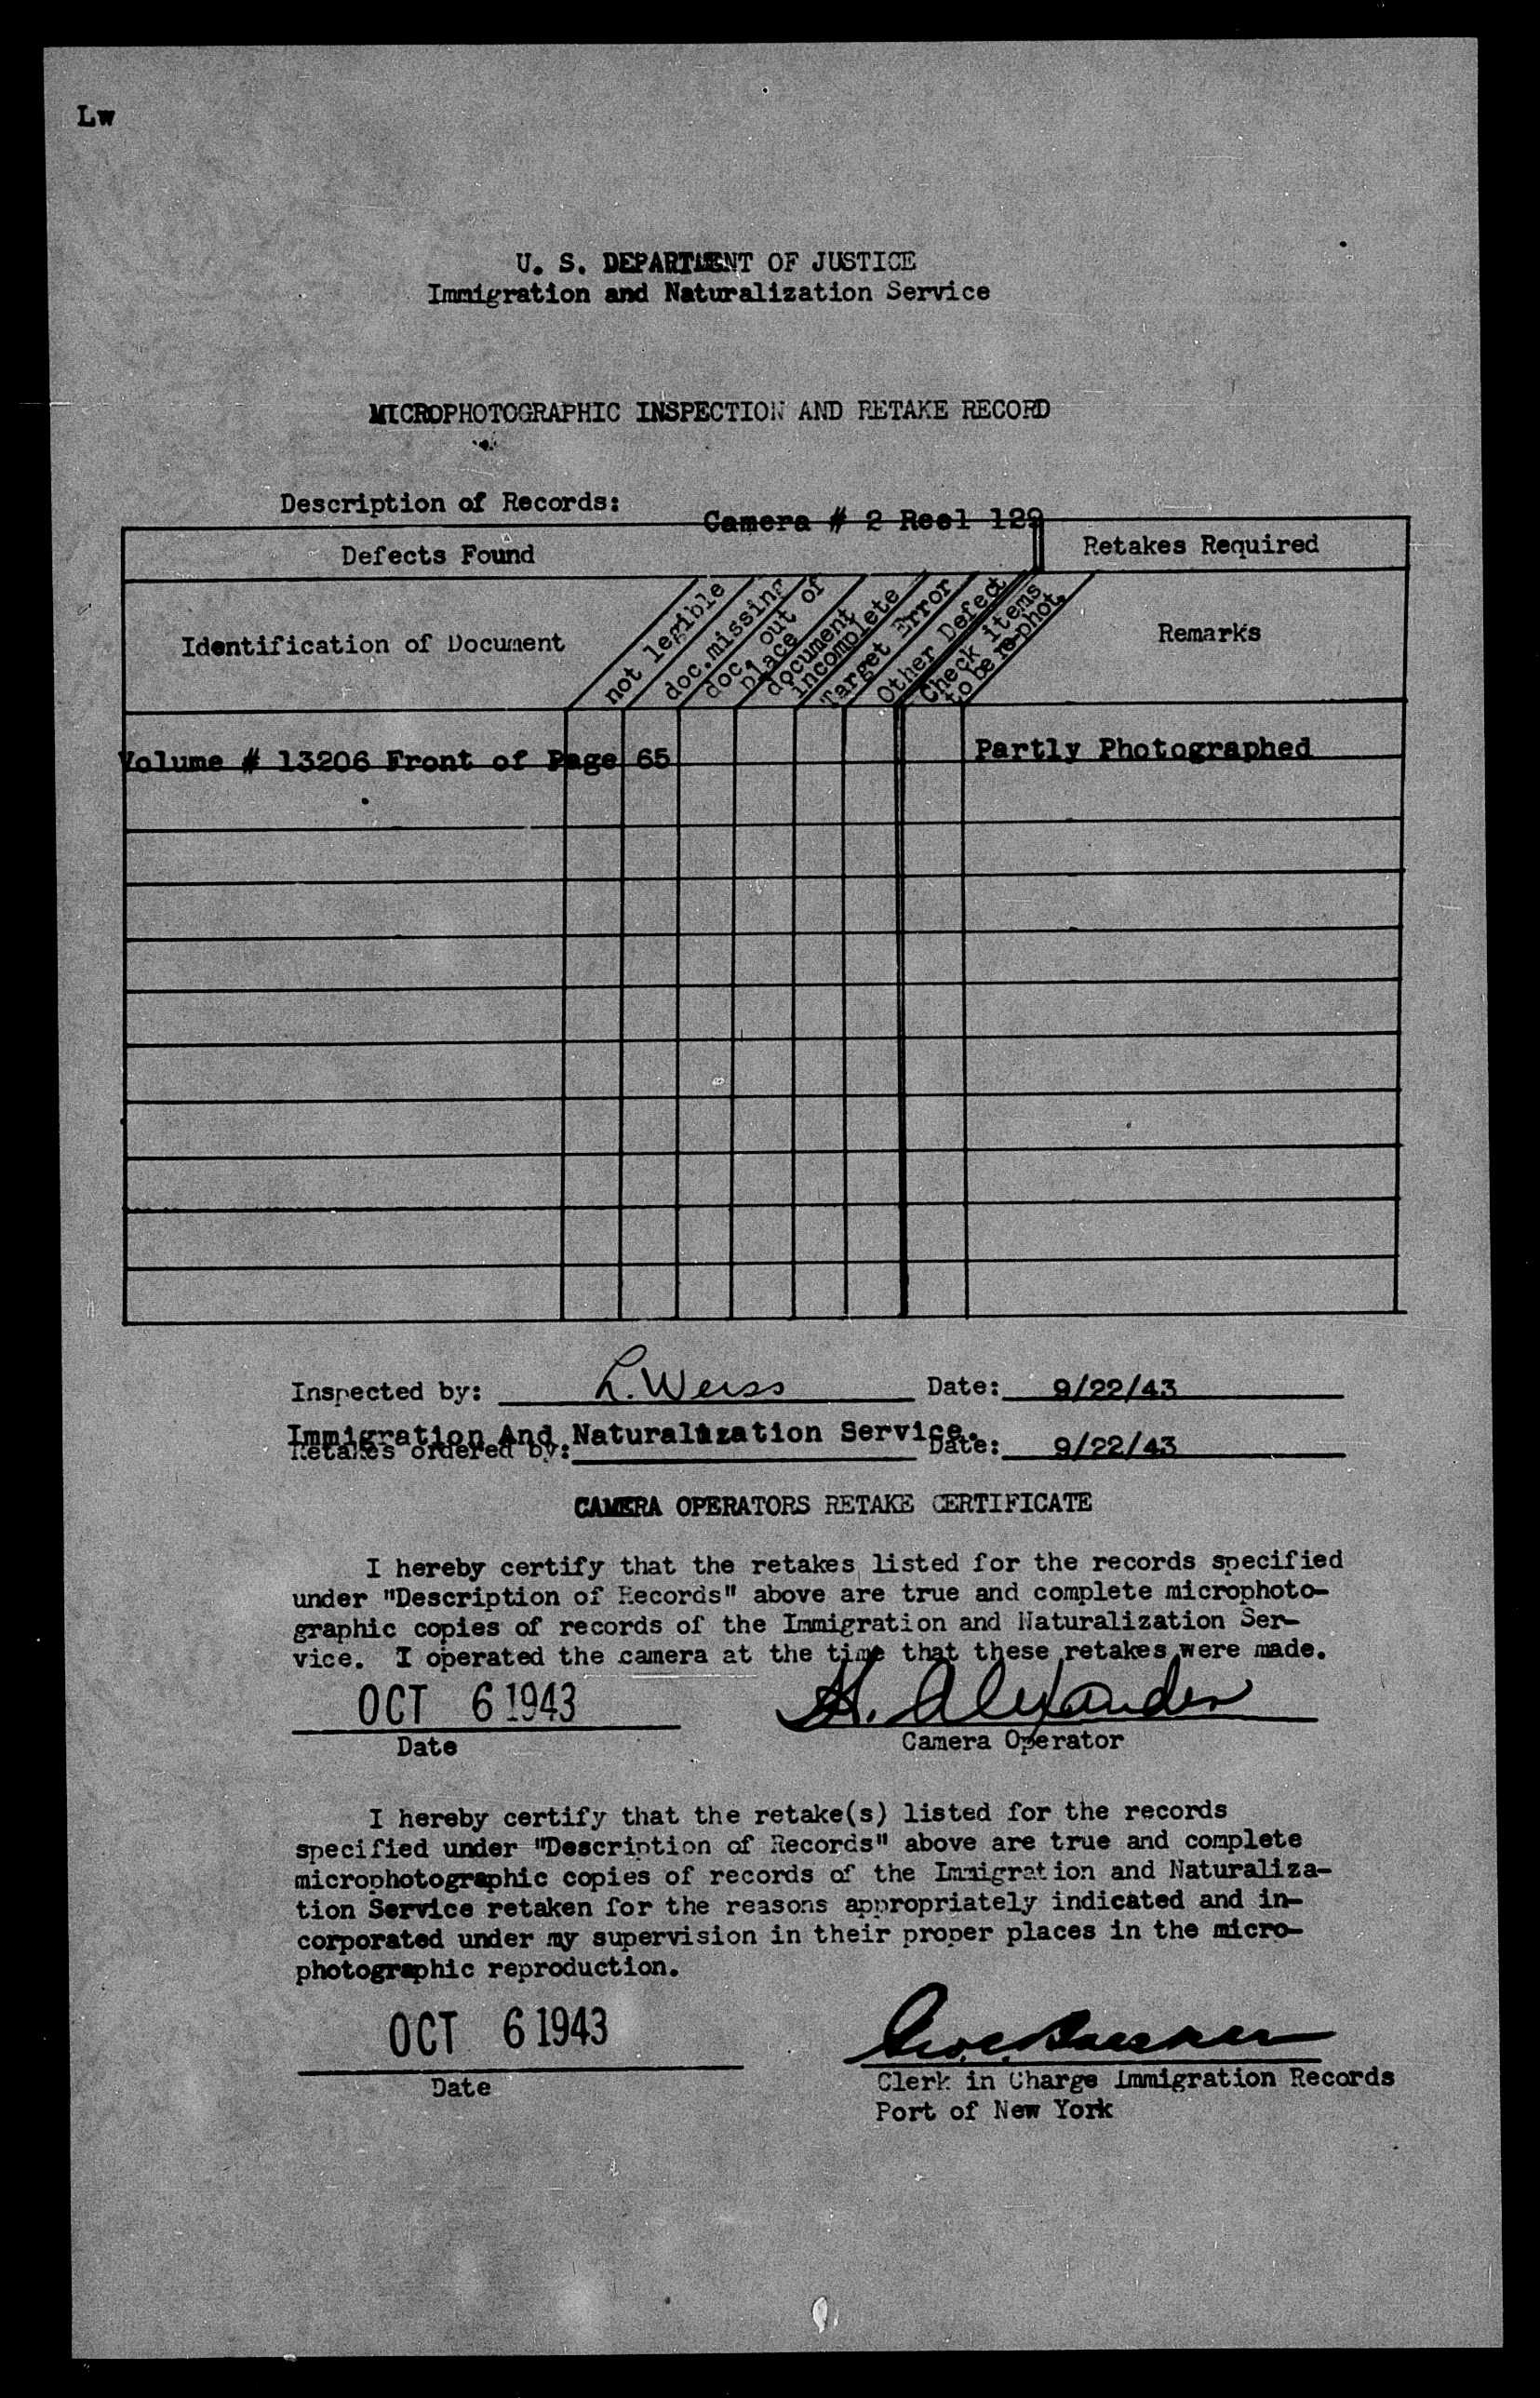 Lw
U. S. DEPARTMENT OF JUSTICE
Immigration and Naturalization Service
MICROPHOTOGRAPHIC INSPECTION AND RETAKE RECORD
Description of Records:
Camera # 2 Reel 129
Defects Found
Retakes Required
Identification of Document
not legible
doc.missing
doc. out of
place
document
incomplete
Target Error
Other Defect
Check items
to be re-phot.
Remarks
Volume # 13206 Front of Page 65
Partly Photographed
Inspected by: L. Weiss Date: 9/22/43
Immigration And Naturalization Service.
Retakes ordered by: Date: 9/22/43
CAMERA OPERATORS RETAKE CERTIFICATE
I hereby certify that the retakes listed for the records specified
under "Description of Records" above are true and complete microphoto-
graphic copies of records of the Immigration and Naturalization Ser-
vice. I operated the camera at the time that these retakes were made.
OCT 6 1943 H. Alexander
Date Camera Operator
I hereby certify that the retake(s) listed for the records
specified under "Description of Records" above are true and complete
microphotographic copies of records of the Immigration and Naturaliza-
tion Service retaken for the reasons appropriately indicated and in-
corporated under my supervision in their proper places in the micro-
photographic reproduction.
OCT 6 1943
Date
Clerk in Charge Immigration Records
Port of New York